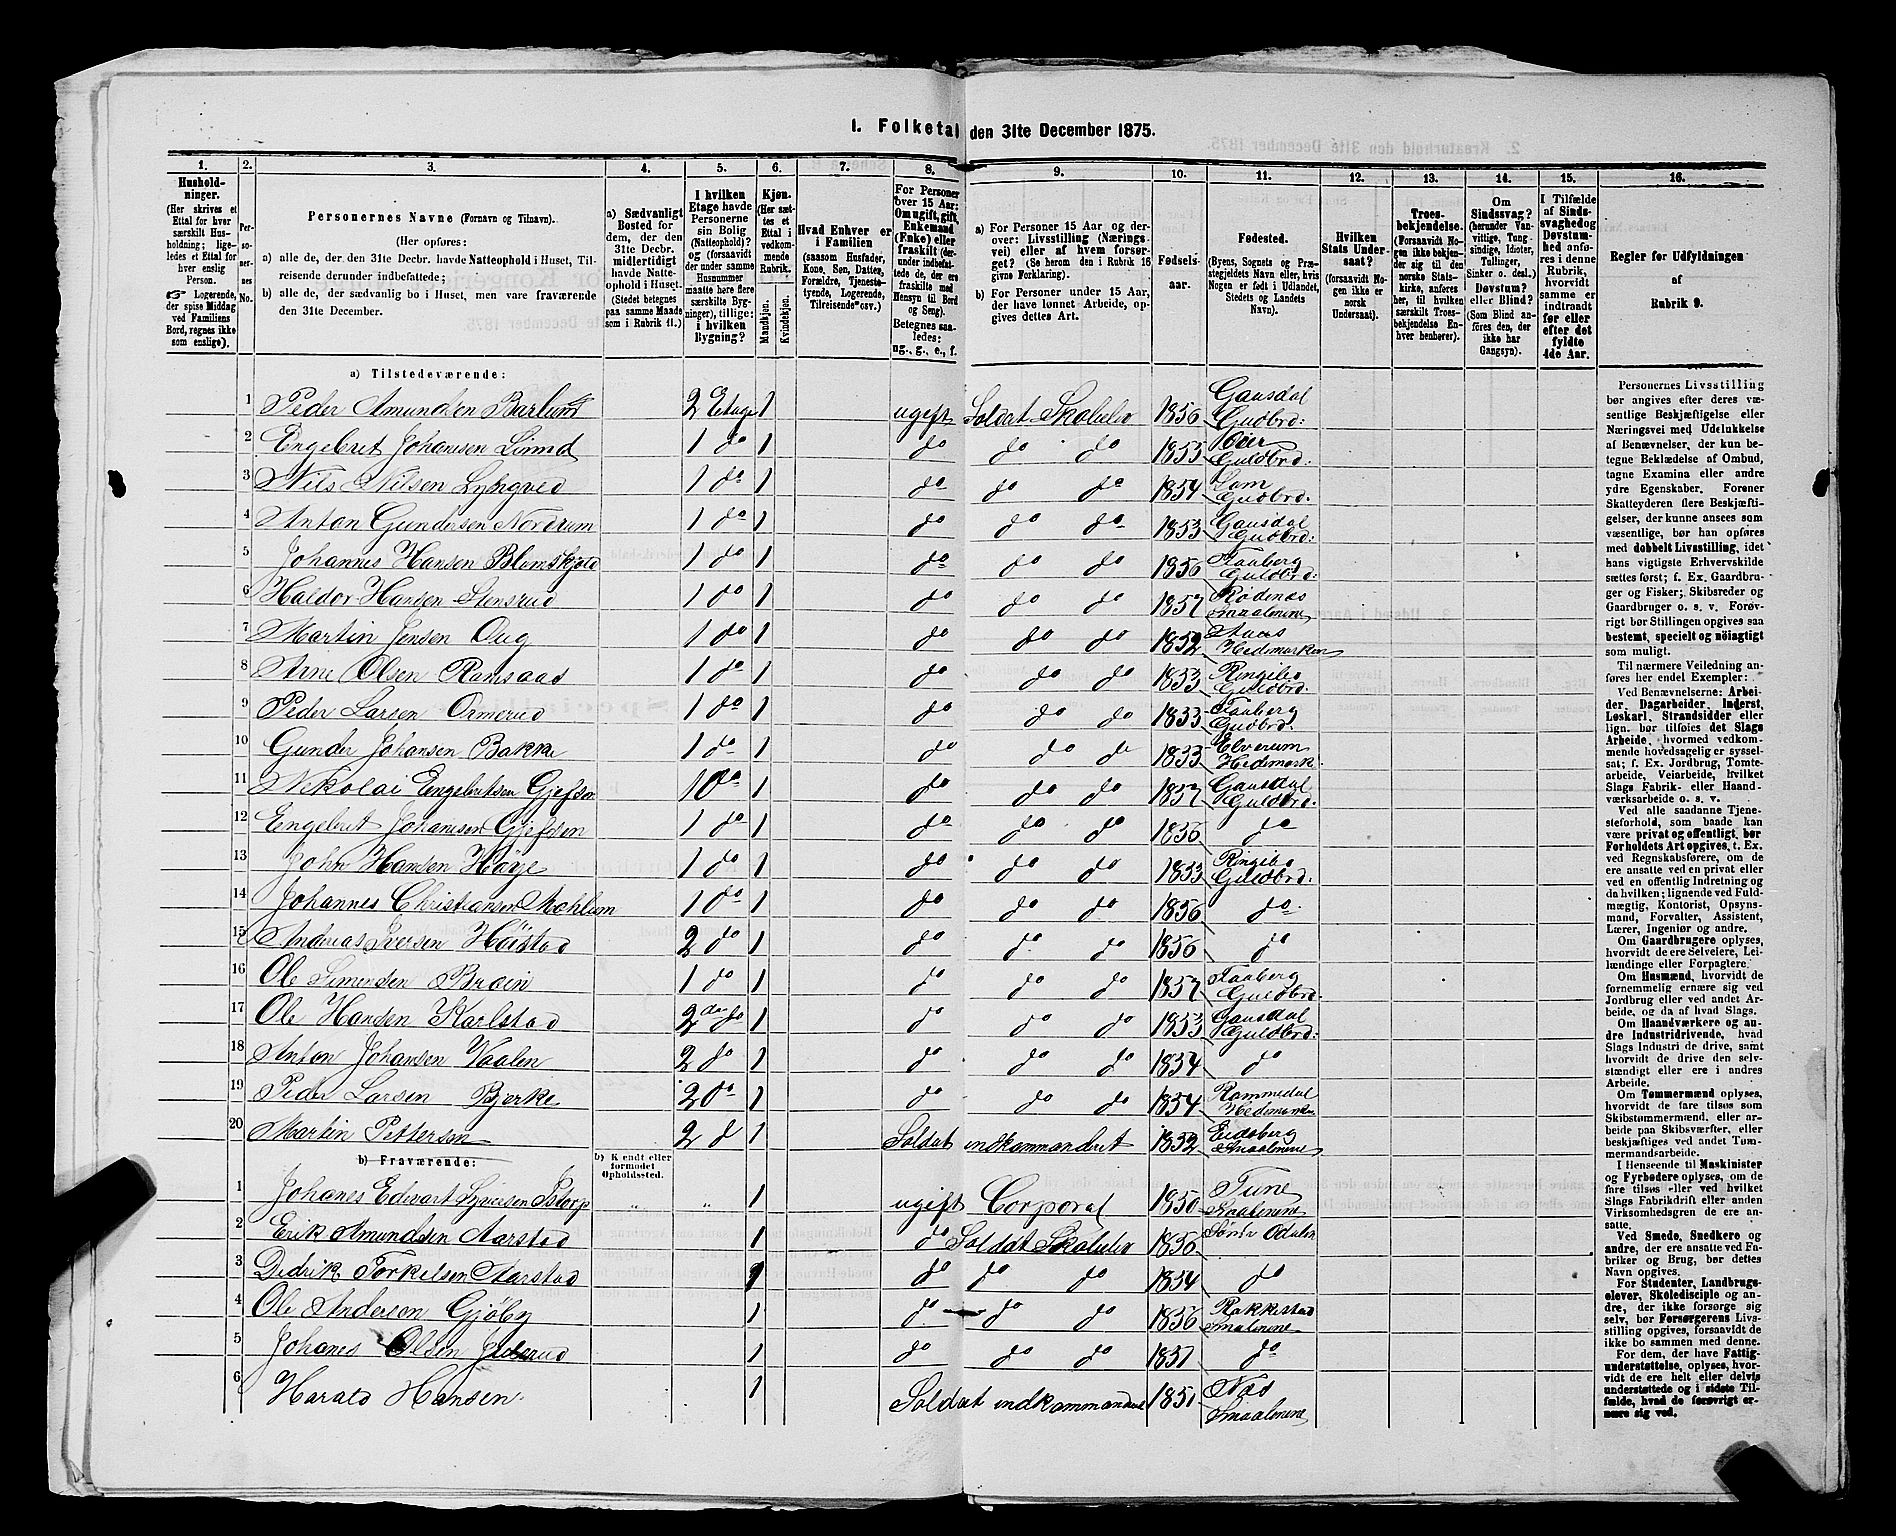 I. Folketal den 31te December 1875.
1. 2. 3. 4. 5. 6. 7. 8. 9. 10. 11. 12. 13. 14. 15. 16.
Hushold-
ninger.
(Her skrives et
Ettal for hver
særskilt Hus-
holdning; lige-
ledes et Ettal for
hver enslig
Person.
☞ Logerende,
der spise Middag
ved Familiens
Bord, regnes ikke
som enslige).
Per-
so-
ner-
nes
No.
Personernes Navne (Fornavn og Tilnavn).
(Her opføres:
a) alle de, der den 31te Decbr. havde Natteophold i Huset, Til-
reisende derunder indbefattede;
b) alle de, der sædvanlig bo i Huset, men vare fraværende
den 31te December.
a) Sædvanligt
Bosted for
dem, der den
31te Decbr.
midlertidigt
havde Natte-
ophold i Huset.
(Stedet betegnes
paa samme Maade
som i Rubrik 11.)
I hvilken
Etage havde
Personerne
sin Bolig
(Natteophold)?
og (forsaavidt
der under samme
Husnummer
maatte høre flere
særskilte Byg-
ninger), tillige:
i hvilken
Bygning?
Kjøn.
(Her sæt-
tes et
Ettal i
vedkom-
mende
Rubrik.
Mandkjøn.
Kvindekjøn.
Hvad Enhver er
i Familien
(saasom Husfader,
Kone, Søn, Datter,
Forældre, Tjeneste-
tyende, Logerende,
Tilreisende osv.)
For Personer
over 15 Aar:
Om ugift, gift,
Enkemand
(Enke) eller
fraskilt (der-
under indbefat-
tede de, der ere
fraskilte med
Hensyn til Bord
og Seng).
Betegnes saa-
ledes:
ug., g., e., f.
a) For Personer 15 Aar og der-
over: Livsstilling (Nærings-
vei) eller af hvem forsør-
get? (Se herom den i Rubrik 16
givne Forklaring).
b) For Personer under 15 Aar,
der have lønnet Arbeide, op-
gives dettes Art.
Fødsels-
aar.
Fødested.
(Byens, Sognets og Præ-
stegjeldets Navn eller, hvis
Nogen er født i Udlandet,
Stedets og Landets
Navn).
Hvilken
Stats Under-
saat?
(forsaavidt No-
gen ikke er
norsk
Undersaat).
Troes-
bekjendelse.
(Forsaavidt No-
gen ikke bekjen-
der sig til den
norske Stats-
kirke, anføres
her, til hvilken
særskilt Troes-
bekjendelse En-
hver henhører).
Om
Sindssvag?
(herunder Van-
vittige, Tung-
sindige, Idioter,
Tullinger,
Sinker o. desl.)
Døvstum?
eller Blind?
(Som Blind an-
føres den, der
ikke har
Gangsyn).
I Tilfælde
af Sinds-
svaghed og
Døvstum-
hed anfø-
res i denne
Rubrik,
hvorvidt
samme er
indtraadt
før eller
efter det
fyldte
4de Aar.
Regler for Udfyldningen
af
Rubrik 9.
a) Tilstedeværende:
1 Peder Amundsen Barlund 2 Etage 1 ugift Soldat Skoleelev 1856 Gausdal Gudbrd:
2 Engebret Johansen Lund 1 do 1 do do do 1855 Øier Guldbrd:
3 Nils Nilsen Lyngved 1 do 1 do do do 1854 Lom Gudbrd:
4 Anton Gundersen Nordrum 1 do 1 do do do 1853 Gausdal Gudbrd:
5 Johannes Hansen Blumskjold 1 do 1 do do do 1856 Faaberg Guldbrd:
6 Haldor Hansen Stensrud 1 do 1 do do do 1857 Rødenæs Smaalenene
7 Martin Jensen Oug 1 do 1 do do do 1852 Hedemarken
8 Arne Olsen Ramsaas 1 do 1 do do do 1853 Ringibo Guldbrd:
9 Peder Larsen Ormerud 1 do 1 do do do 1853 Faaberg Gudbrd:
10 Gunder Johansen Bakke 1 do 1 do do do 1853 Elverum Hedemark:
11 Nikolai Engebretsen Gjefsen 1 do 1 do do do 1857 Gausdal Guldbrd:
12 Engebret Johansen Gjefsen 1 do 1 do do do 1856 do
13 John Hansen Høvje 1 do 1 do do do 1853 Ringibo Guldbrd:
14 Johannes Christiansen Mæhlum 1 do 1 do do do 1856 do
15 Andreas Iversen Høistad 2 do 1 do do do 1856 do
16 Ole Simensen Bræin 1 do 1 do do do 1857 Faaberg Guldbrd:
17 Ole Hansen Karlstad 2 do 1 do do do 1853 Gausdal Guldbrd:
18 Anton Johansen Vaalen 2 do 1 do do do 1854 do
19 Peder Larsen Bjerke 2 do 1 do do do 1854 Rommedal Hedemarken
20 Martin Pettersen 2 d 1 Soldat indkommanderet 1852 Eidsberg Smaalenene
b) Fraværende:
b) Kjendt eller
formodet
Opholdssted.
1 Johanes Edevart Syversen " " 1 ugift Corporal 1850 Tune Smaalenene
2 Erik Amundsen Aarstad 1 do Soldat Skoleelev 1856 Søndr Odalen
3 Didrik Torkelsen Aarstad 1 do do do 1854 do
4 Ole Anderson Gjøby 1 do do do 1856 Rakkestad Smalenene
5 Johanes Olsen Julsrud 1 do do do 1857 do
6 Harald Hansen 1 Soldat indkommanderet 1851 Næs Smaalenene
Personernes Livsstilling
bør angives efter deres væ-
sentlige Beskjæftigelse eller
Næringsvei med Udelukkelse
af Benævnelser, der kun be-
tegne Beklædelse af Ombud,
tagne Examina eller andre
ydre Egenskaber. Forener
Skatteyderen flere Beskjæfti-
gelser, der kunne ansees som
væsentlige, bør han opføres
med dobbelt Livsstilling, idet
hans vigtigste Erhvervskilde
sættes først; f. Ex. Gaardbru-
ger og Fisker; Skibsreder og
Gaardbruger o. s. v. Forøv-
rigt bør Stillingen opgives saa
bestemt, specielt og nöiagtigt
som muligt.
Til nærmere Veiledning an-
føres her endel Exempler:
Ved Benævnelserne: Arbei-
der, Dagarbeider, Inderst,
Løskarl, Strandsidder eller
lign. bør tilføies det Slags
Arbeide, hvormed vedkom-
mende hovedsagelig er syssel-
sat; f. Ex. Jordbrug, Tomte-
arbeide, Veiarbeide, hvilket
Slags Fabrik- eller Haand-
værksarbeide o. s. v.
Ved alle saadanne Tjene-
steforhold, som baade kan
være privat og offentligt, bør
Forholdets Art opgives, t. Ex.
ved Regnskabsførere, om de
ere ansatte ved en privat eller
ved en offentlig Indretning og
da hvilken; lignende ved Fuld-
mægtig, Kontorist, Opsyns-
mand, Forvalter, Assistent,
Lærer, Ingeniør og andre.
Om Gaardbrugere oplyses,
hvorvidt de ere Selveiere, Lei-
lændinge eller Forpagtere.
Om Husmænd, hvorvidt de
fornemmelig ernære sig ved
Jordbrug eller ved andet Ar-
beide, og da af hvad Slags.
Om Haandværkere og an-
dre Industridrivende, hvad
Slags Industri de drive, samt
hvorvidt de drive den selv-
stændigt eller ere i andres
Arbeide.
Om Tømmermænd oplyses,
hvorvidt de fare tilsøs som
Skibstømmermænd, eller ar-
beide paa Skibsværfter, eller
beskjæftiges ved andet Tøm-
mermandsarbeide.
I Henseende til Maskinister
og Fyrbødere oplyses, om de
fare tilsøs eller ved hvilket
Slags Fabrikdrift eller anden
Virksomhedsgren de ere an-
satte.
Ved Smede, Snedkere og
andre, der ere ansatte ved Fa-
briker og Brug, bør dettes
Navn opgives.
For Studenter, Landbrugs-
elever, Skoledisciple og an-
dre, der ikke forsørge sig
selv, bør Forsørgerens Livs-
stilling opgives, forsaavidt de
ikke bo sammen med denne.
For dem, der have Fattig-
understøttelse, oplyses, hvor-
vidt de ere helt eller delvis
understøttede og i sidste Til-
fælde, hvad de forøvrigt er-
nære sig ved.